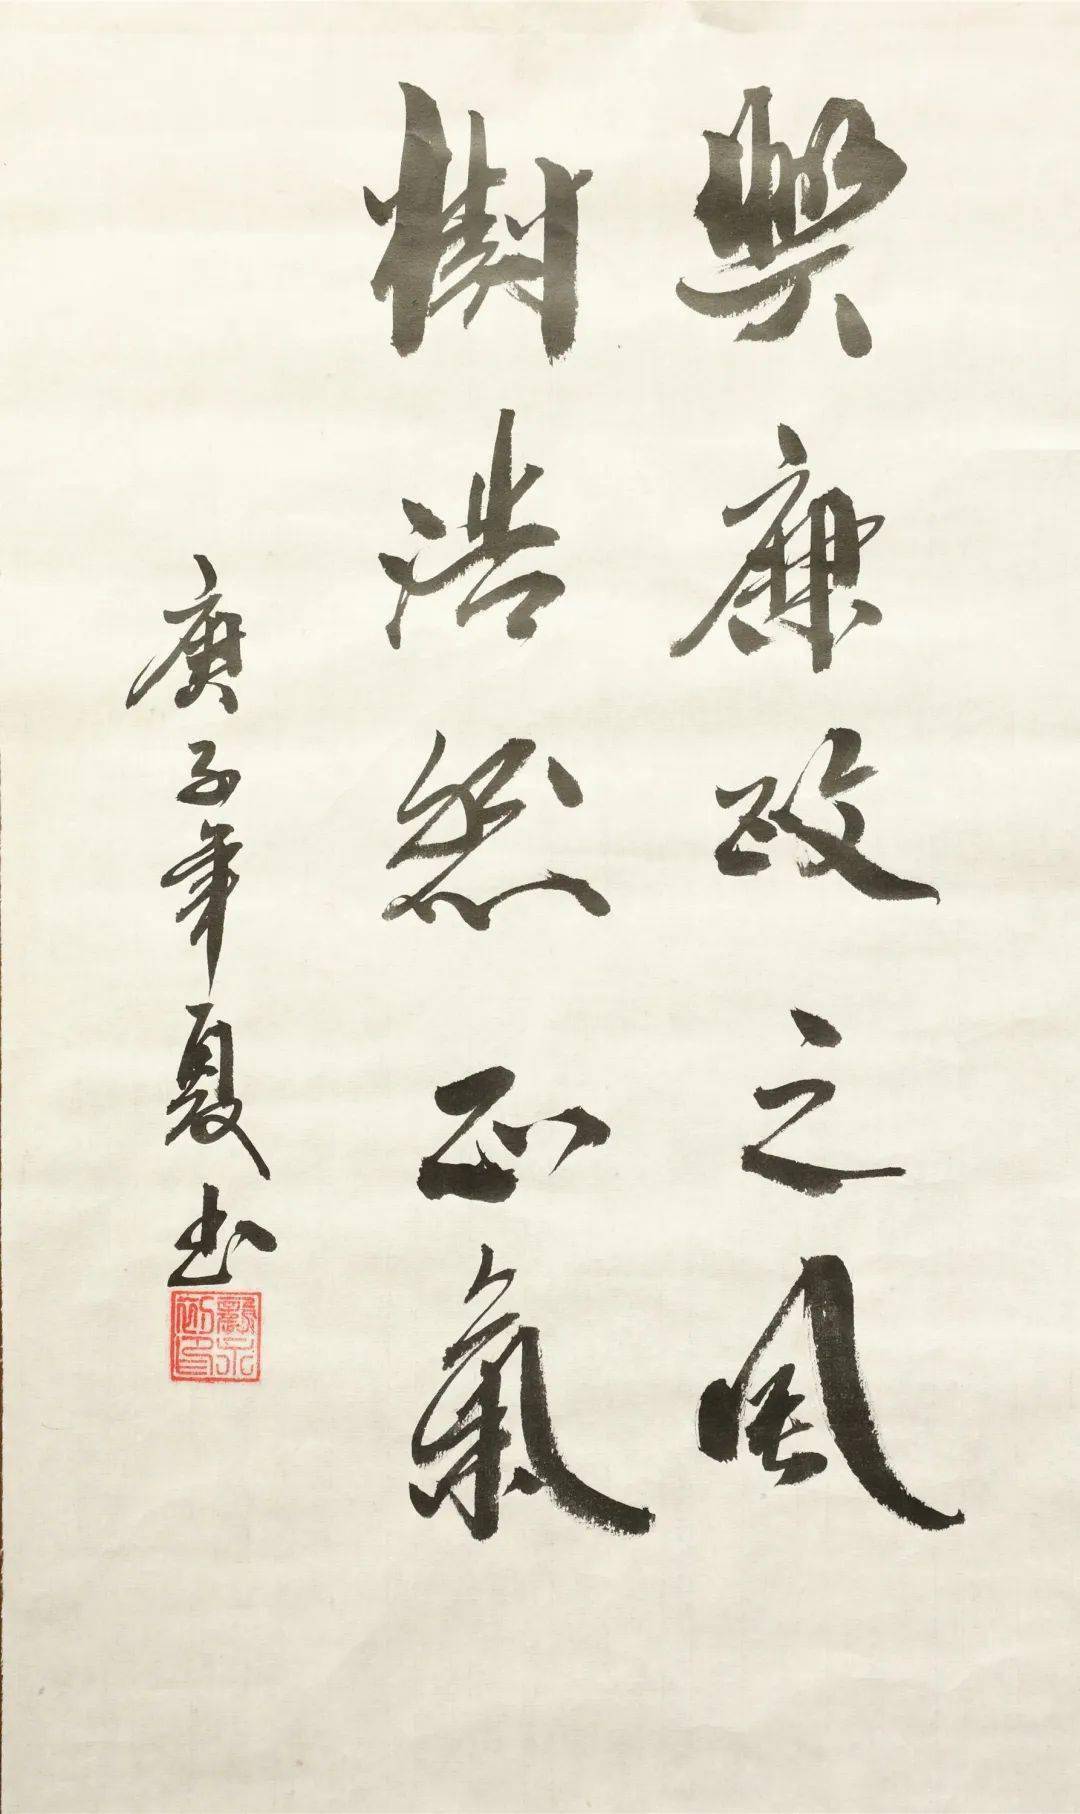 興廉政之风
樹浩然正氣
庚子年夏书